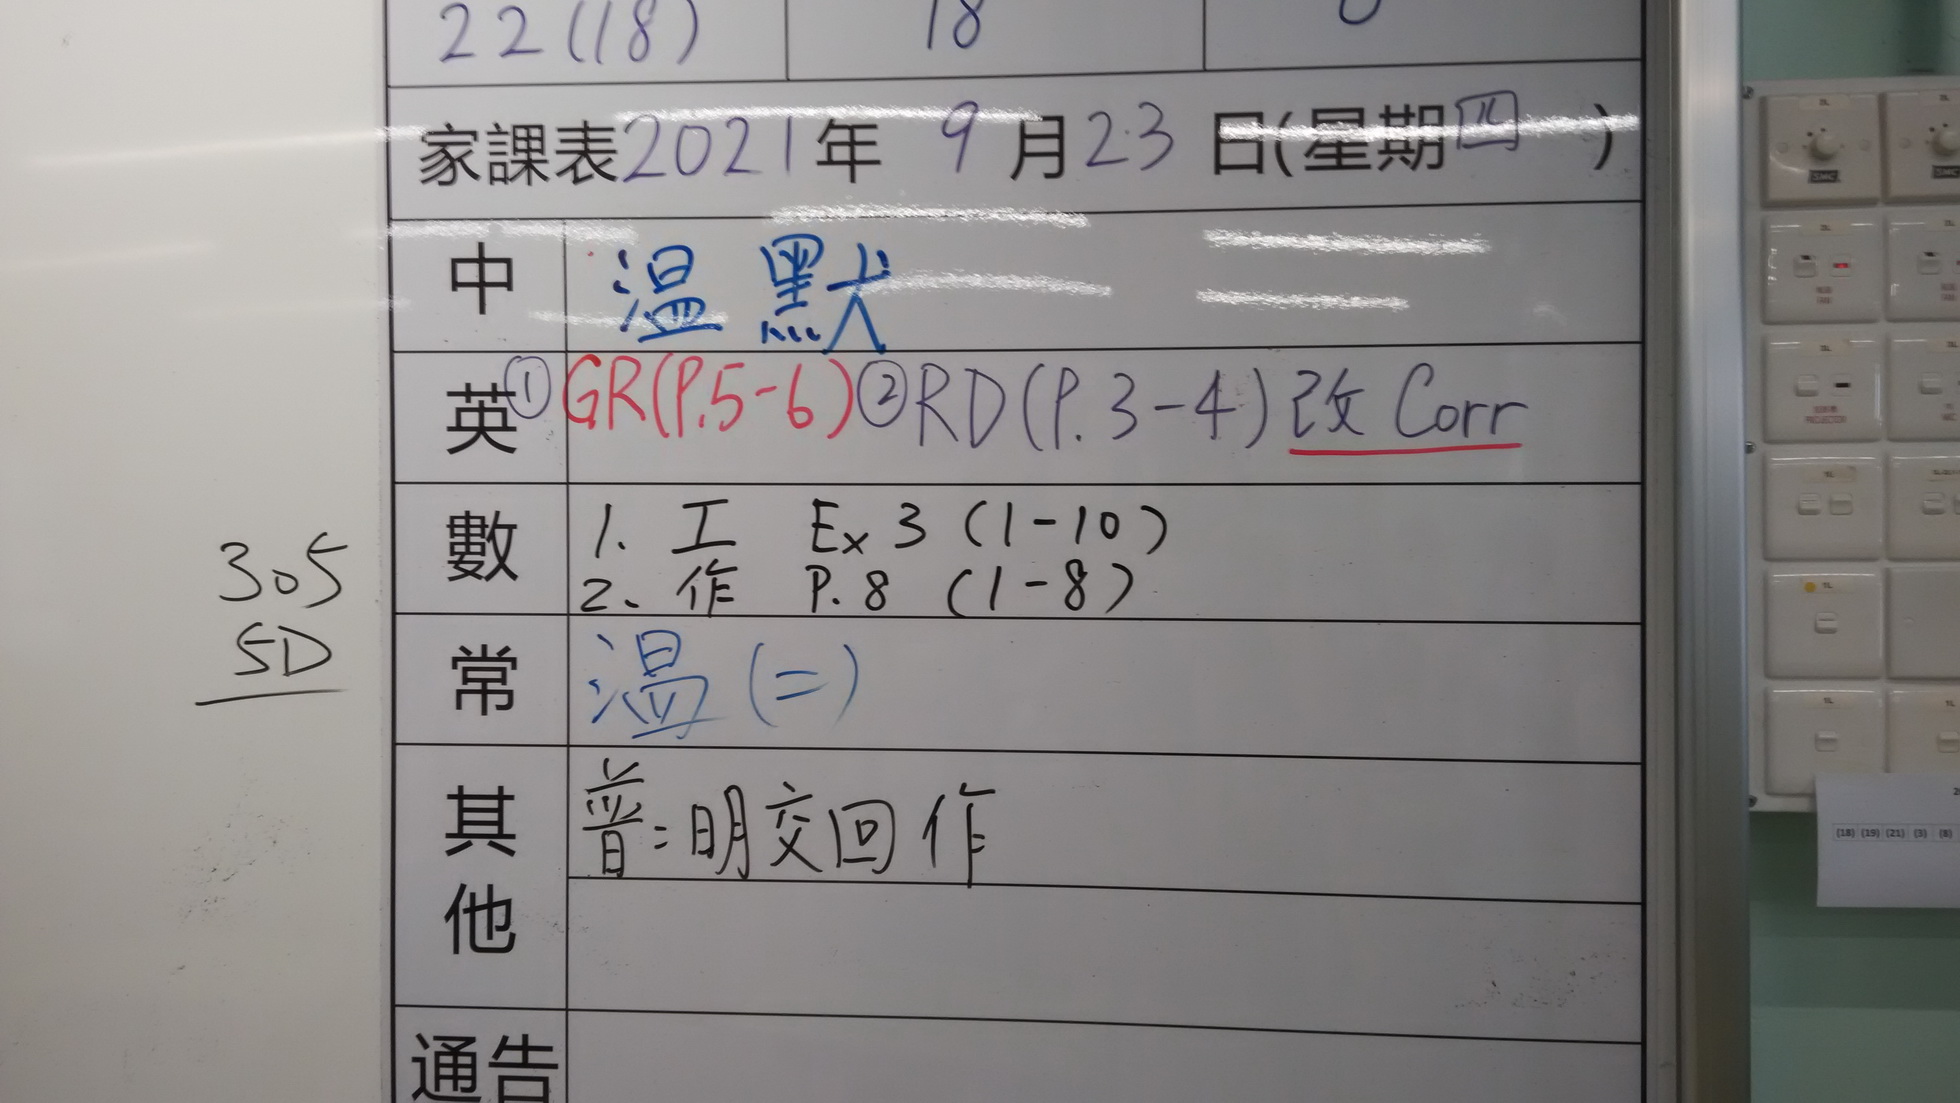 22(18) 18 0
家課表2021年 9月23日(星期四 )
中 温 默
英 ①GR(P.5-6)②RD(P.3-4)改 Corr
數 1. 工 Ex 3 (1-10)
2. 作 P.8 (1-8)
305
5D
常 温(=)
其他 普:明交回作
通告
(18) (19) (21) (3) (8)